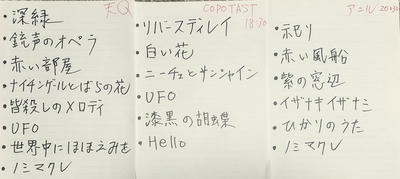 天Q
深緑
銃声のオペラ
赤い部屋
ナイチンゲールとばらの花
皆殺しのメロディ
UFO
世界中にほほえみを
ノミマクレ
COPOTAST
18:30
リバースディレイ
白い花
ニーチェとサンシャイン
UFO
漆黒の胡蝶
Hello
アニル 20:30
ネモリ
赤い風船
紫の窓辺
イザナキイザナミ
ひかりのうた
ノミマクレ